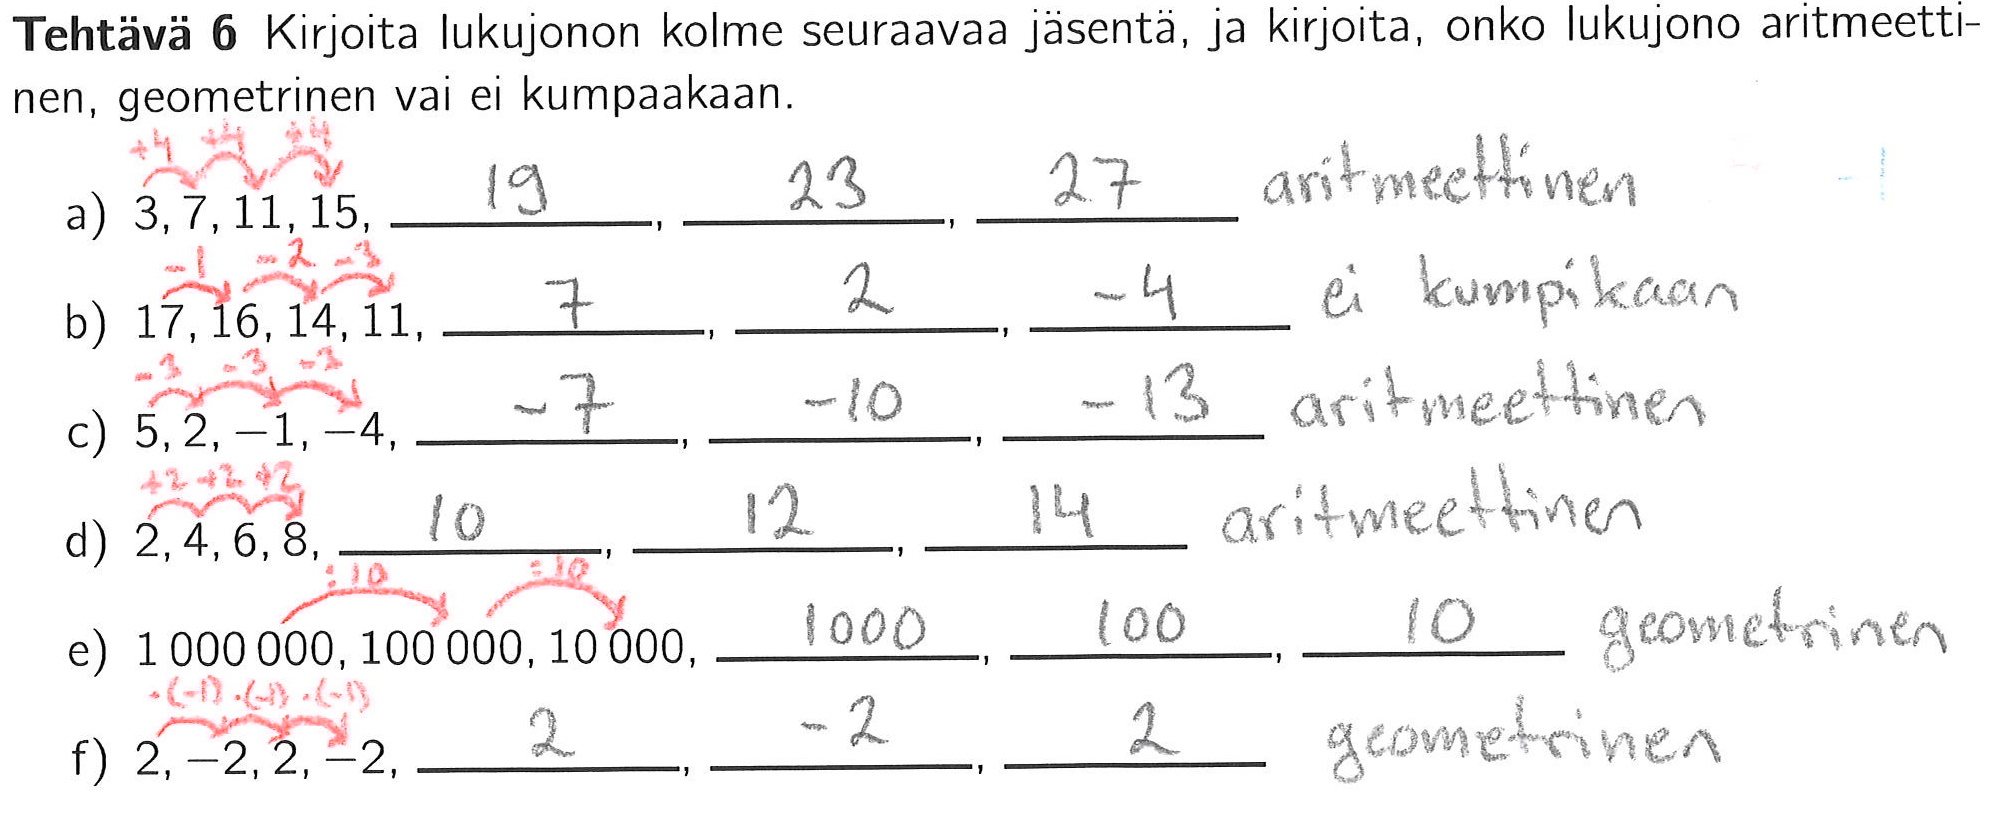 Tehtävä 6 Kirjoita lukujonon kolme seuraavaa jäsentä, ja kirjoita, onko lukujono aritmeetti-
nen, geometrinen vai ei kumpaakaan.
+4 +4 +4
a) 3, 7, 11, 15, 19, 23, 27 aritmeettinen
-1 -2 -3
b) 17, 16, 14, 11, 7, 2, -4 ei kumpikaan
-3 -3 -3
c) 5, 2, −1, −4, -7, -10, -13 aritmeettinen
+2 +2 +2
d) 2, 4, 6, 8, 10, 12, 14 aritmeettinen
:10 :10
e) 1 000 000, 100 000, 10 000, 1000, 100, 10 geometrinen
·(-1) ·(-1) ·(-1)
f) 2, −2, 2, −2, 2, -2, 2 geometrinen